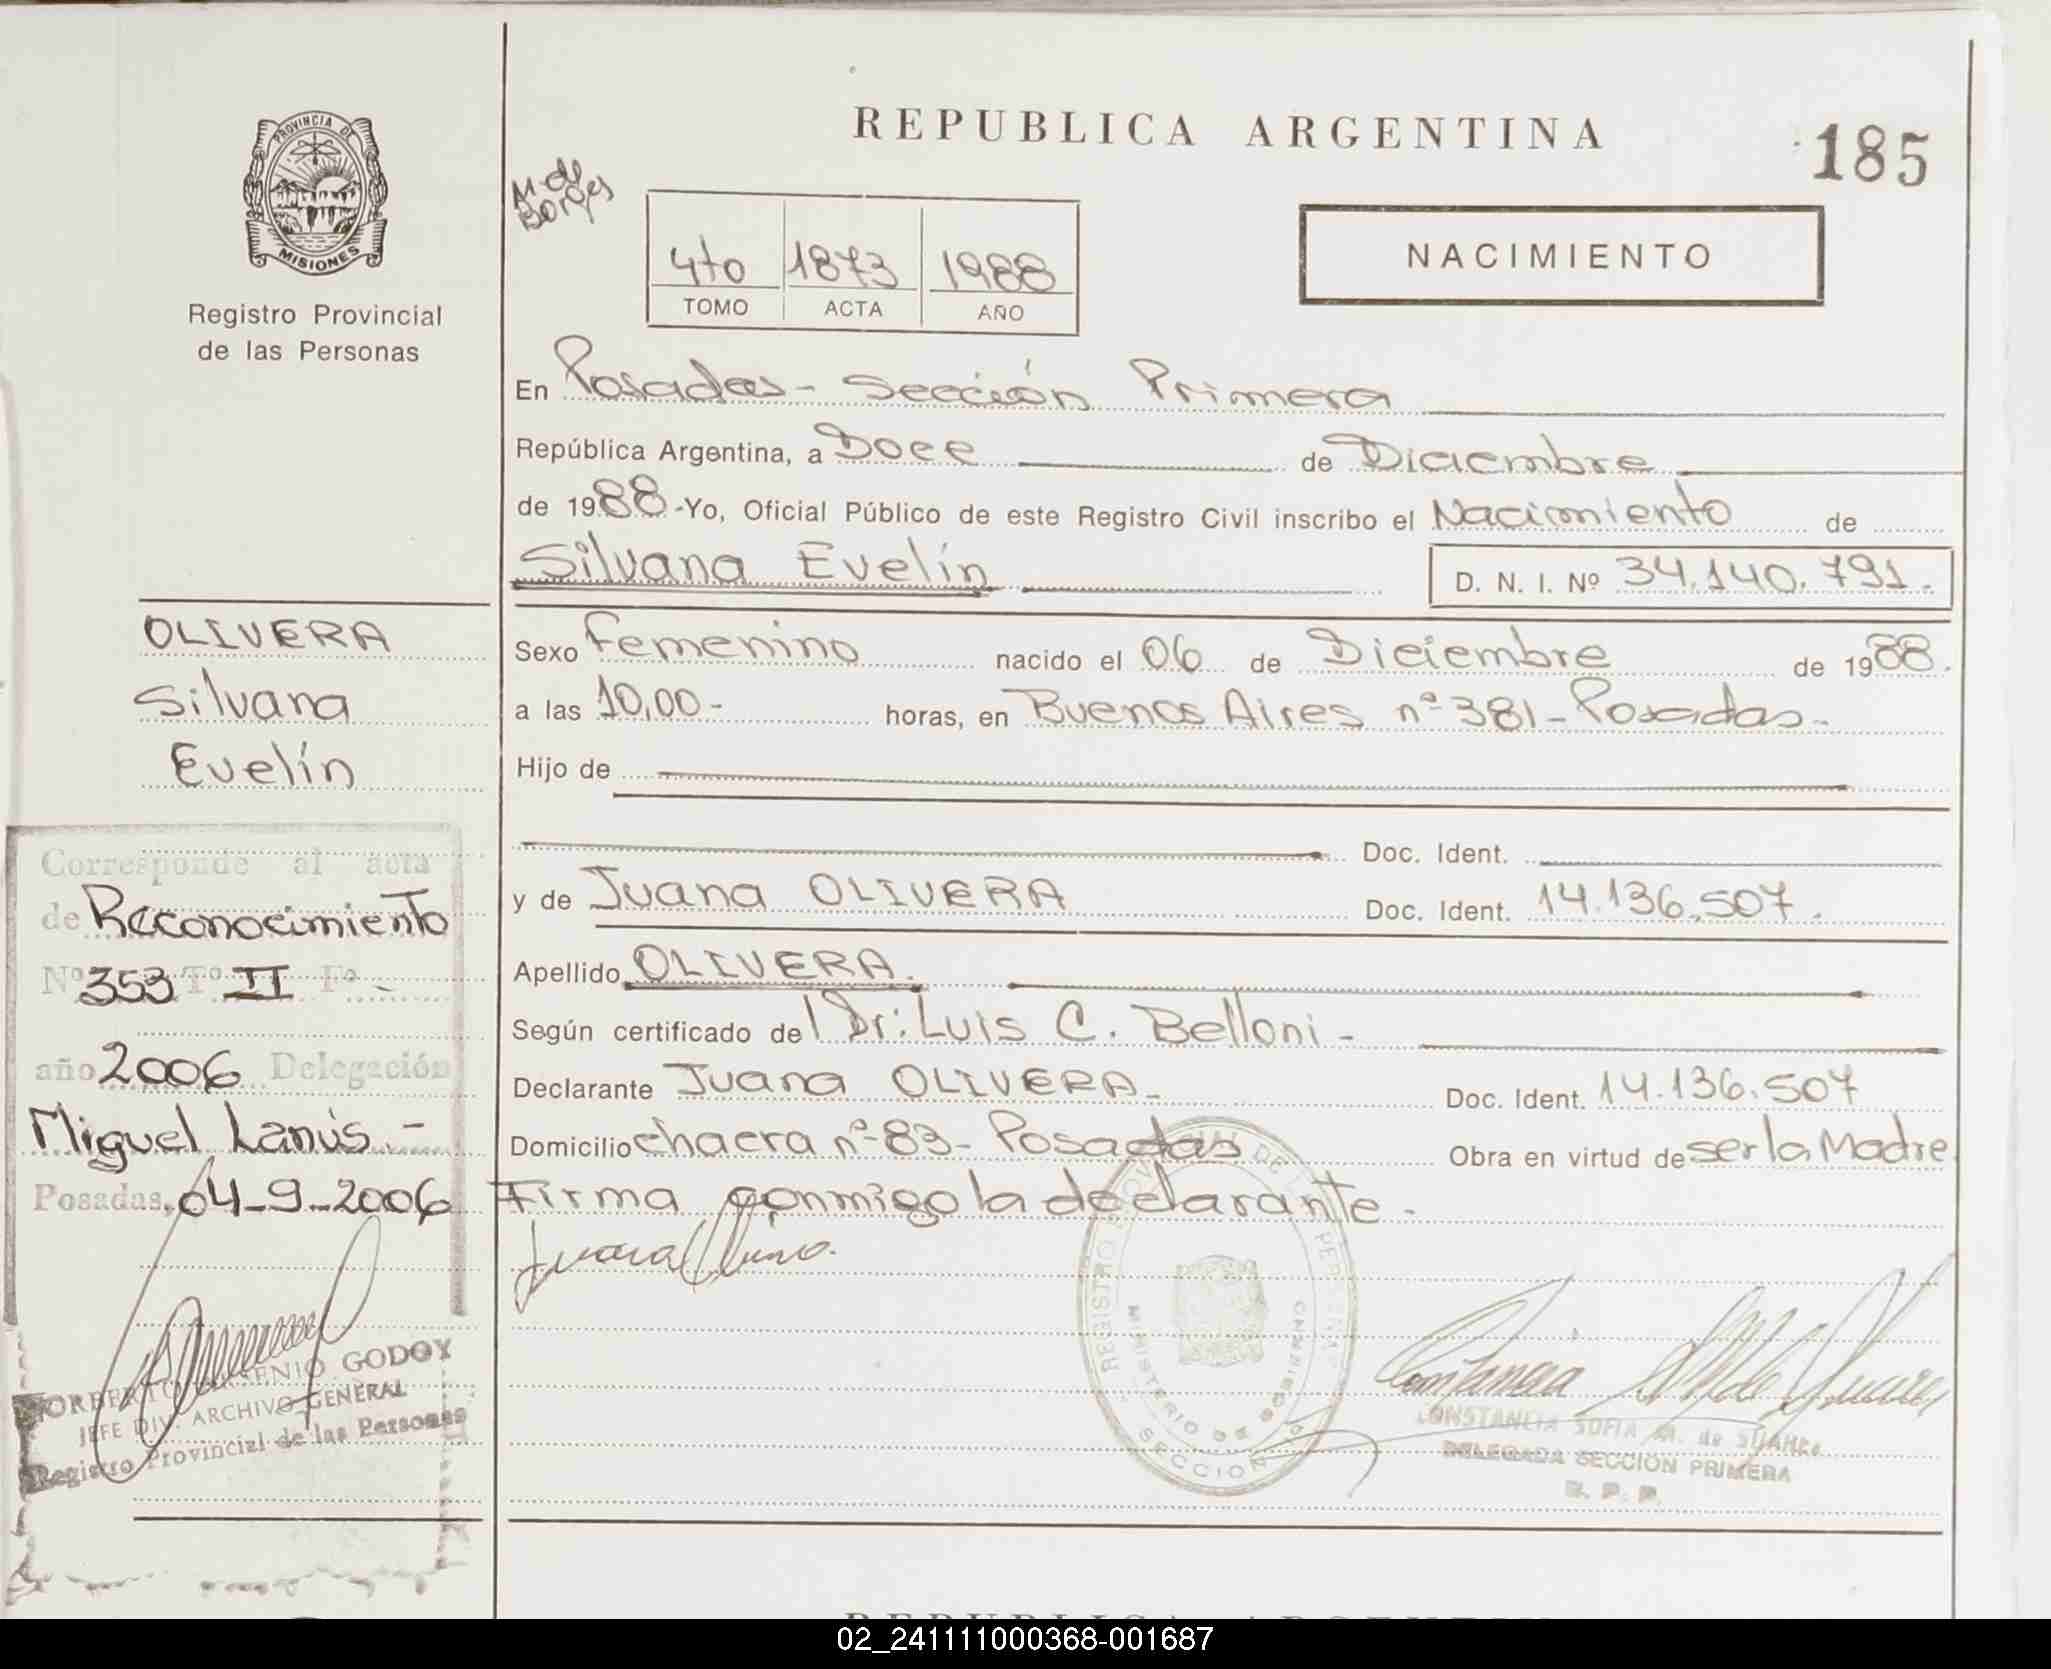 REPUBLICA ARGENTINA
185
PROVINCIA DE
MISIONES
Registro Provincial
de las Personas
M. de
Borges
4to 1873 1988
TOMO ACTA AÑO
NACIMIENTO
En Posadas - Sección Primera
República Argentina, a Doce de Diciembre
de 1988 - Yo, Oficial Público de este Registro Civil inscribo el Nacimiento de
Silvana Evelín D. N. I. Nº 34.140.791.
Sexo Femenino nacido el 06 de Diciembre de 1988.
a las 10,00 - horas, en Buenos Aires nº 381 - Posadas -
Hijo de
Doc. Ident.
y de Juana OLIVERA Doc. Ident. 14.136.507.
Apellido OLIVERA.
Según certificado del Dr: Luis C. Belloni -
Declarante Juana OLIVERA - Doc. Ident. 14.136.507
Domicilio chacra nº 83 - Posadas Obra en virtud de ser la Madre
Firma conmigo la declarante.
OLIVERA
Silvana
Evelín
Corresponde al acta
de Reconocimiento
Nº 353 Tº II Fº -
año 2006 Delegación
Miguel Lanús. -
Posadas, 04-9-2006
NORBERTO GODOY
JEFE DIV. ARCHIVO GENERAL
Registro Provincial de las Personas
MINISTERIO DE GOBIERNO
SECCION
CONSTANCIA SOFIA M. de SUAREZ
DELEGADA SECCIÓN PRIMERA
R. P. P.
REPUBLICA ARGENTINA
02_241111000368-001687